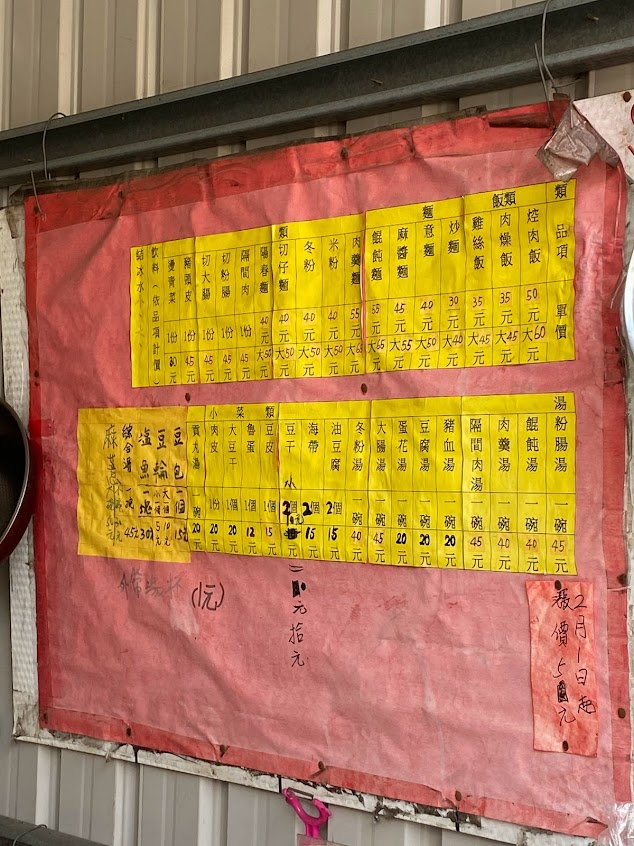 類 品項 單價
飯類
控肉飯 50元 大60元
肉燥飯 35元 大45元
雞絲飯 35元 大45元
麵類
炒麵 30元 大40元
意麵 40元 大50元
麻醬麵 45元 大55元
餛飩麵 55元 大65元
肉羹麵 55元 大65元
米粉 40元 大50元
冬粉 40元 大50元
切仔麵 40元 大50元
陽春麵 40元 大50元
隔間肉 1份 45元
切粉腸 1份 45元
切大腸 1份 45元
豬頭皮 1份 45元
燙青菜 1份 30元
飲料（依品項計價）
結冰水
湯類
粉腸湯 一碗 45元
餛飩湯 一碗 40元
肉羹湯 一碗 40元
隔間肉湯 一碗 45元
豬血湯 一碗 20元
豆腐湯 一碗 20元
蛋花湯 一碗 20元
大腸湯 一碗 45元
冬粉湯 一碗 40元
小菜
油豆腐 2個 15元
海帶 2個 15元
豆干 小 2個 10元
豆皮 1個 15元
魯蛋 1個 12元
大豆干 1份 20元
肉皮 1份 20元
貢丸湯 一碗 20元
豆包 一個 15元
豆輪 大一個 10元 小一個 5元
塩魚 一塊 30元
綜合湯 一碗 45元
元拾元
(1元)
2月1日起
漲價5元